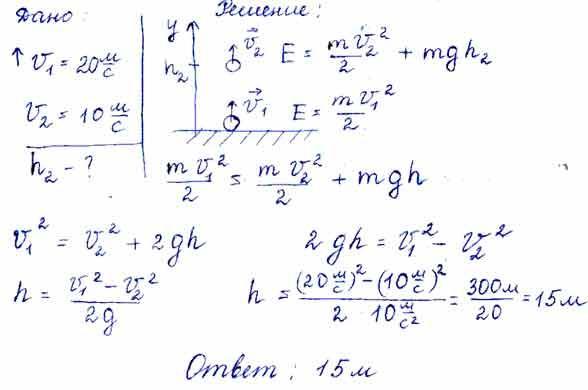 Дано:
↑ v₁ = 20 м/с
v₂ = 10 м/с
h₂ - ?
Решение:
y
h₂
v⃗₂
E = mv₂²/2 + mgh₂
v⃗₁
E = mv₁²/2
mv₁²/2 = mv₂²/2 + mgh
v₁² = v₂² + 2gh
2gh = v₁² - v₂²
h = (v₁² - v₂²)/2g
h = ((20 м/с)² - (10 м/с)²)/(2 10 м/с²) = 300м/20 = 15м
Ответ: 15м